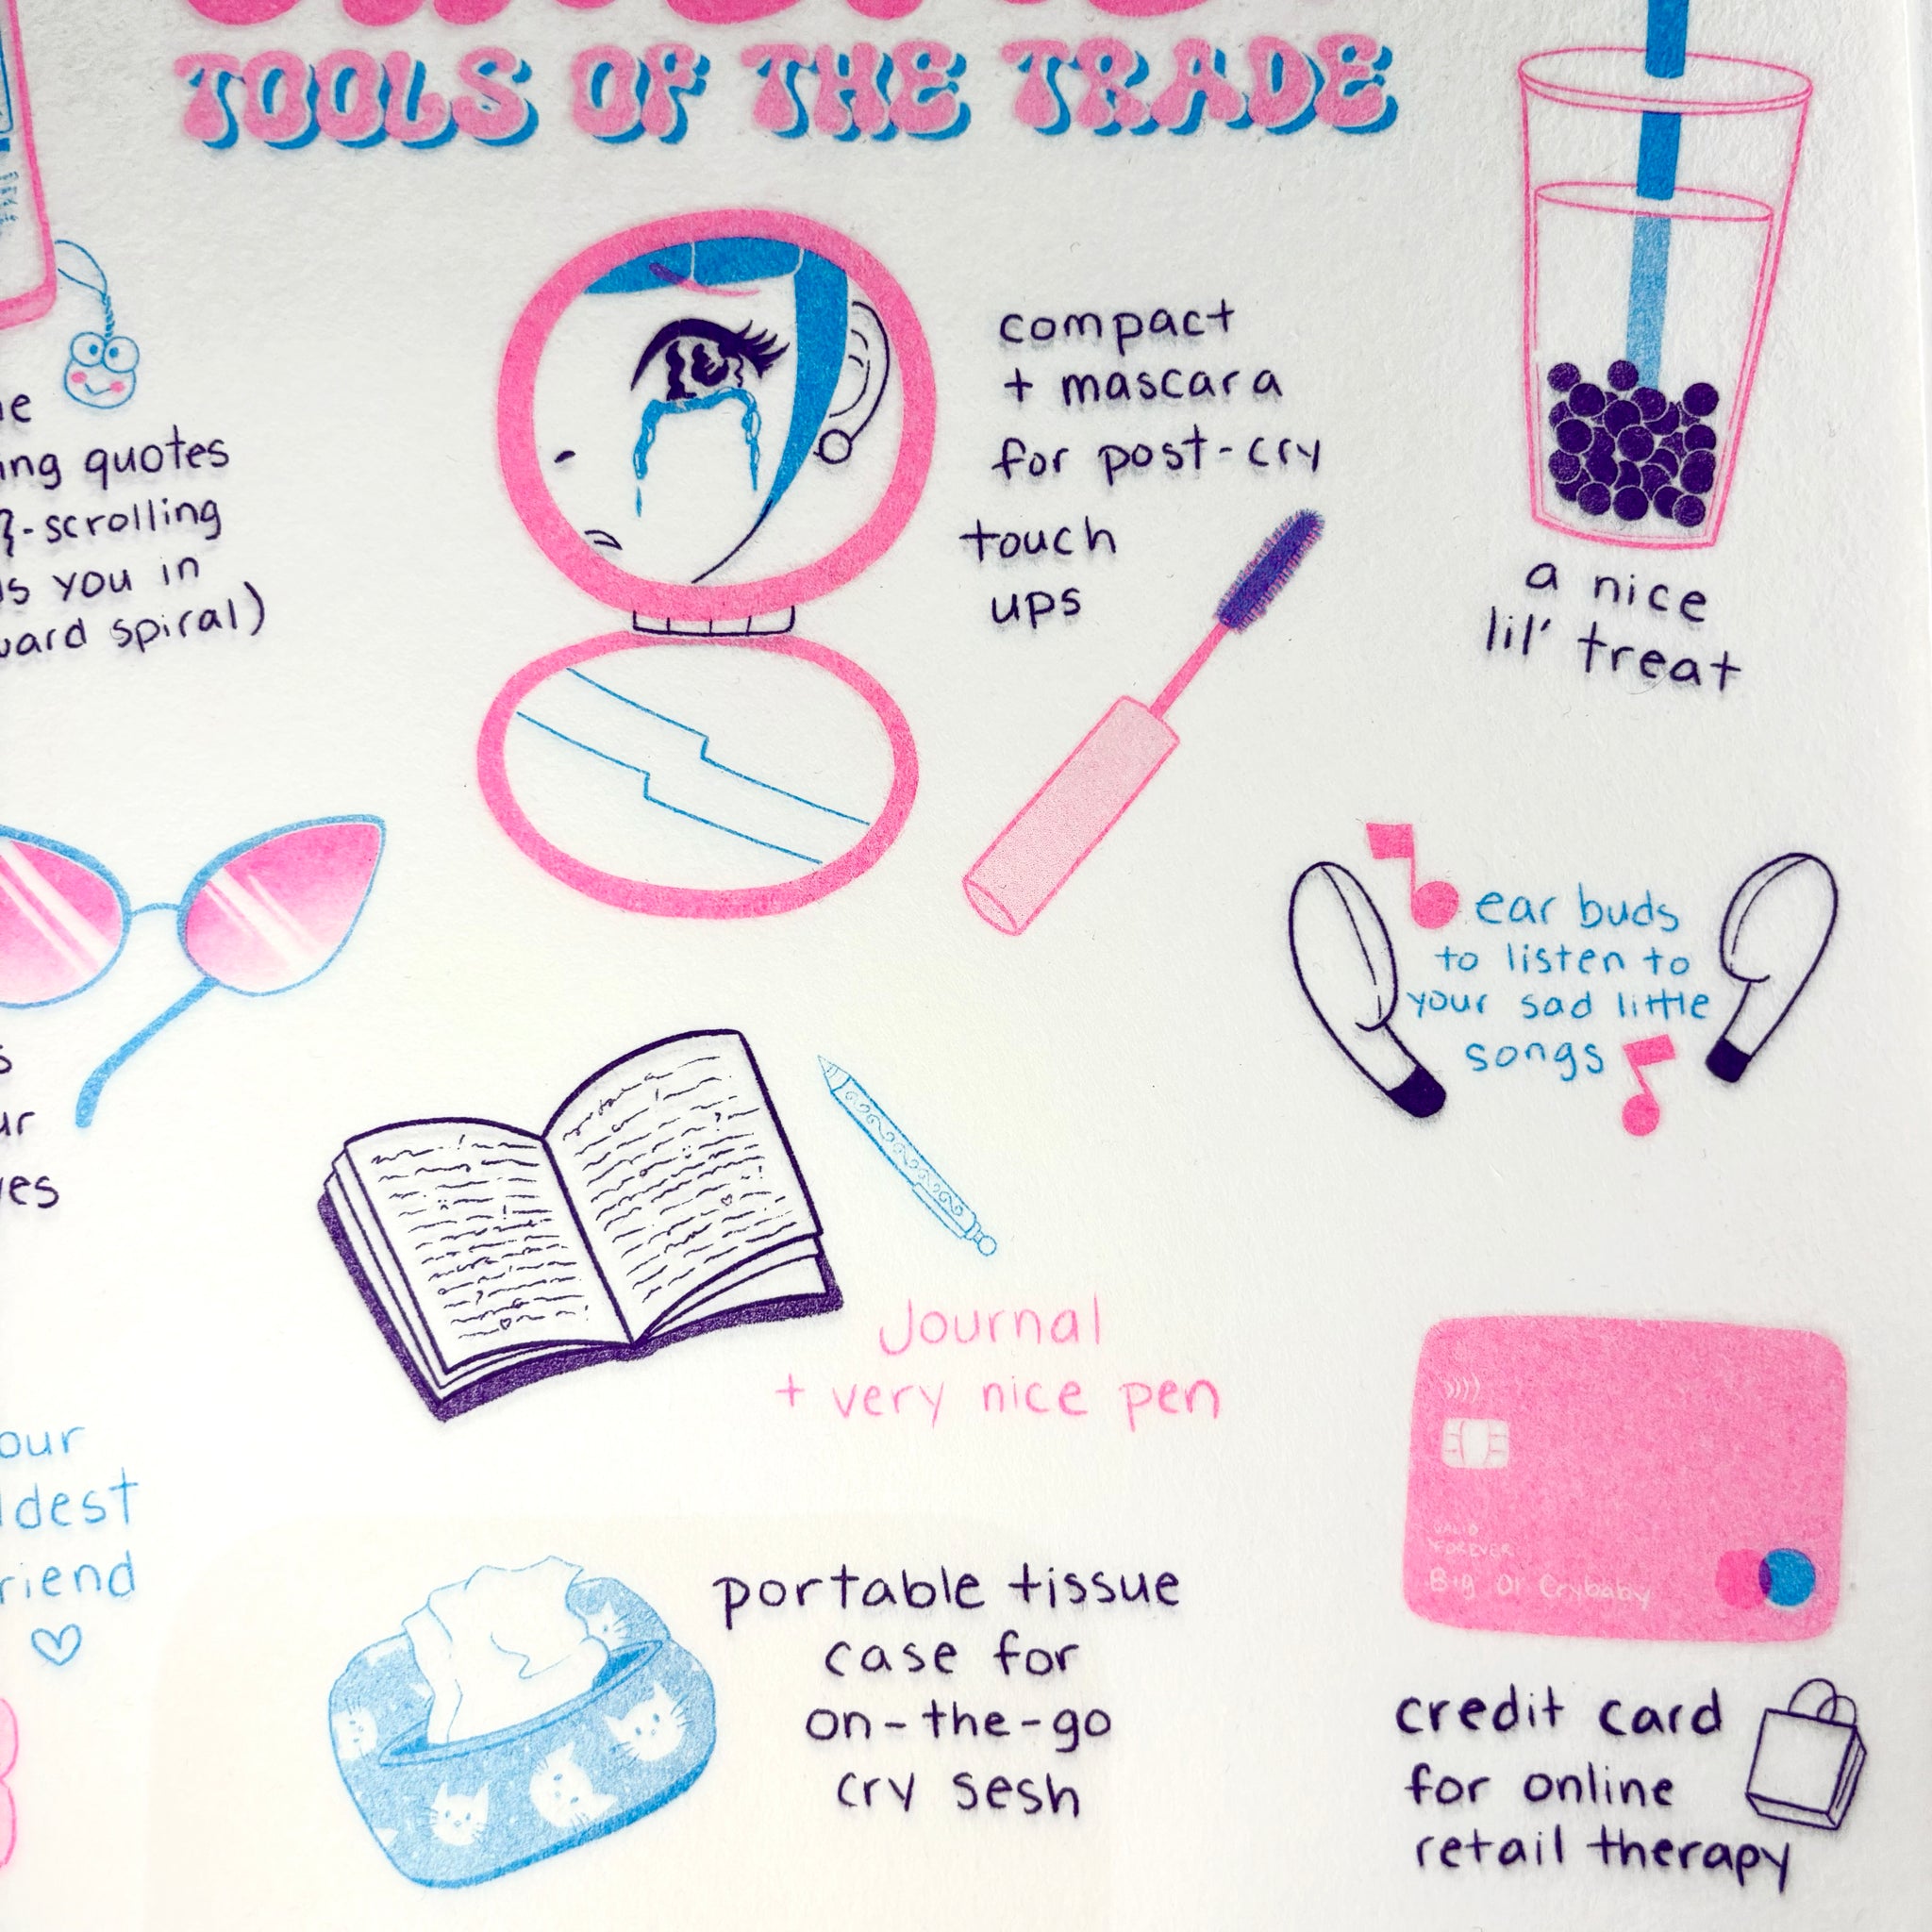 TOOLS OF THE TRADE
quotes
-scrolling
you in
spiral)
compact
+ mascara
for post-cry
touch
ups
a nice
lil' treat
ear buds
to listen to
your sad little
songs
Journal
+ very nice pen
VALID
FOREVER
Crybaby
portable tissue
case for
on-the-go
cry sesh
credit card
for online
retail therapy